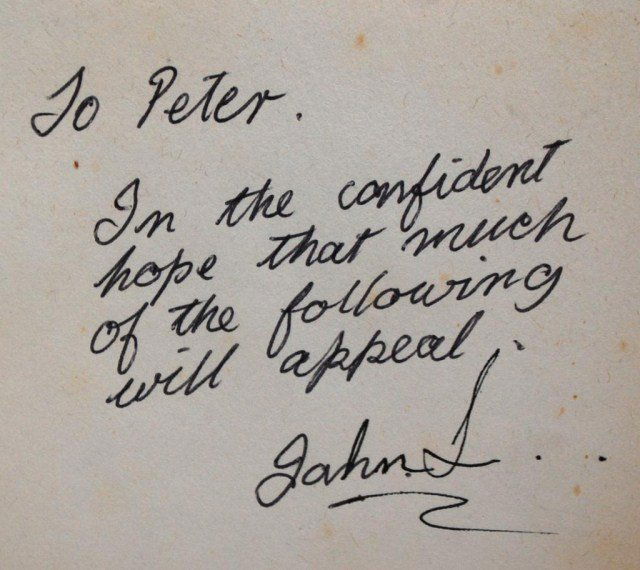 To Peter.
In the confident
hope that much
of the following
will appeal.
John. L